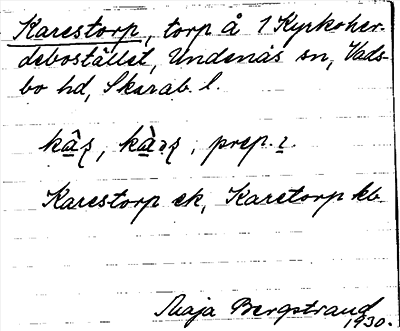 Karestorp, torp å 1 Kyrkoher-
debostället, Undenäs sn, Vads-
bo hd, Skarab. l.
prep. i.
Karestorp ek, Karetorp kb
Maja Bergstrand
1930.